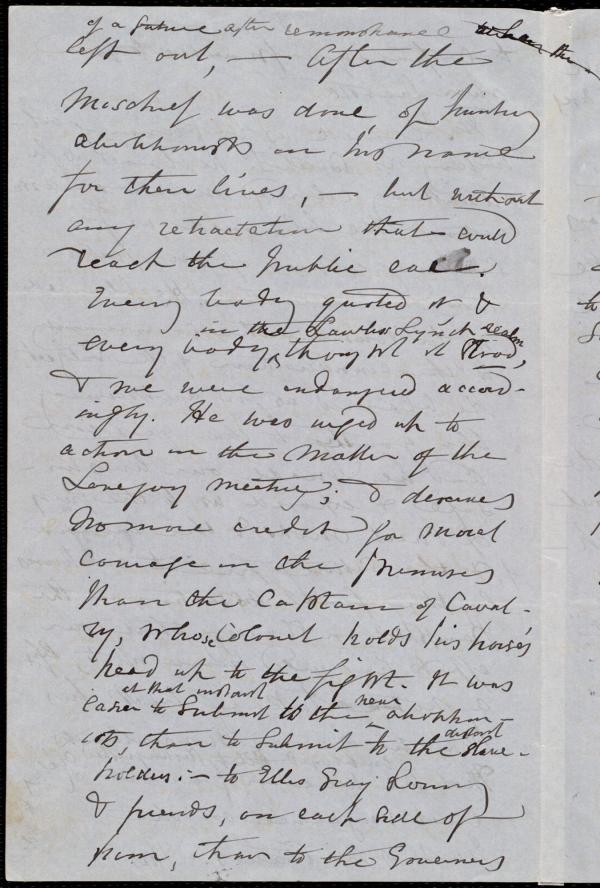 of a future after remonstrance
left out, — After the
Mischief was done, of hunting
abolitionists in his name
for their lives, — but without
any retractation that could
reach the public ear.
Every body quoted it &
in the Lawless Lynch realm
every body, thought it Good,
& we were endangered accord-
ingly. He was urged up to
action in the Matter of the
Lovejoy meeting; & deserves
No more credit for moral
courage in the premises
than the Captain of Caval-
ry, whose Colonel holds his horse's
head up to the fight. It was
at that instant near
easier to Submit to the abolition-
distant
ists, than to Submit to the Slave-
holders: — to Ellis Gray Loring
& friends, on each side of
him, than to the Governors